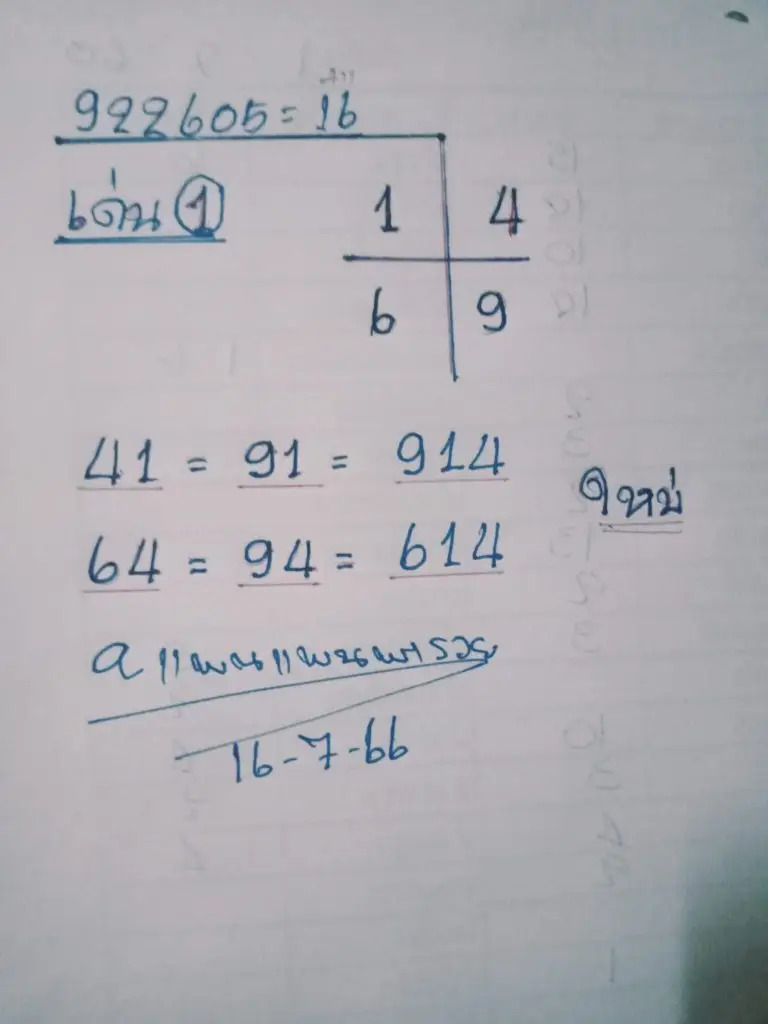 922605=16
เด่น 1
1 4
6 9
41 = 91 = 914
ใหม่
64 = 94 = 614
16-7-66